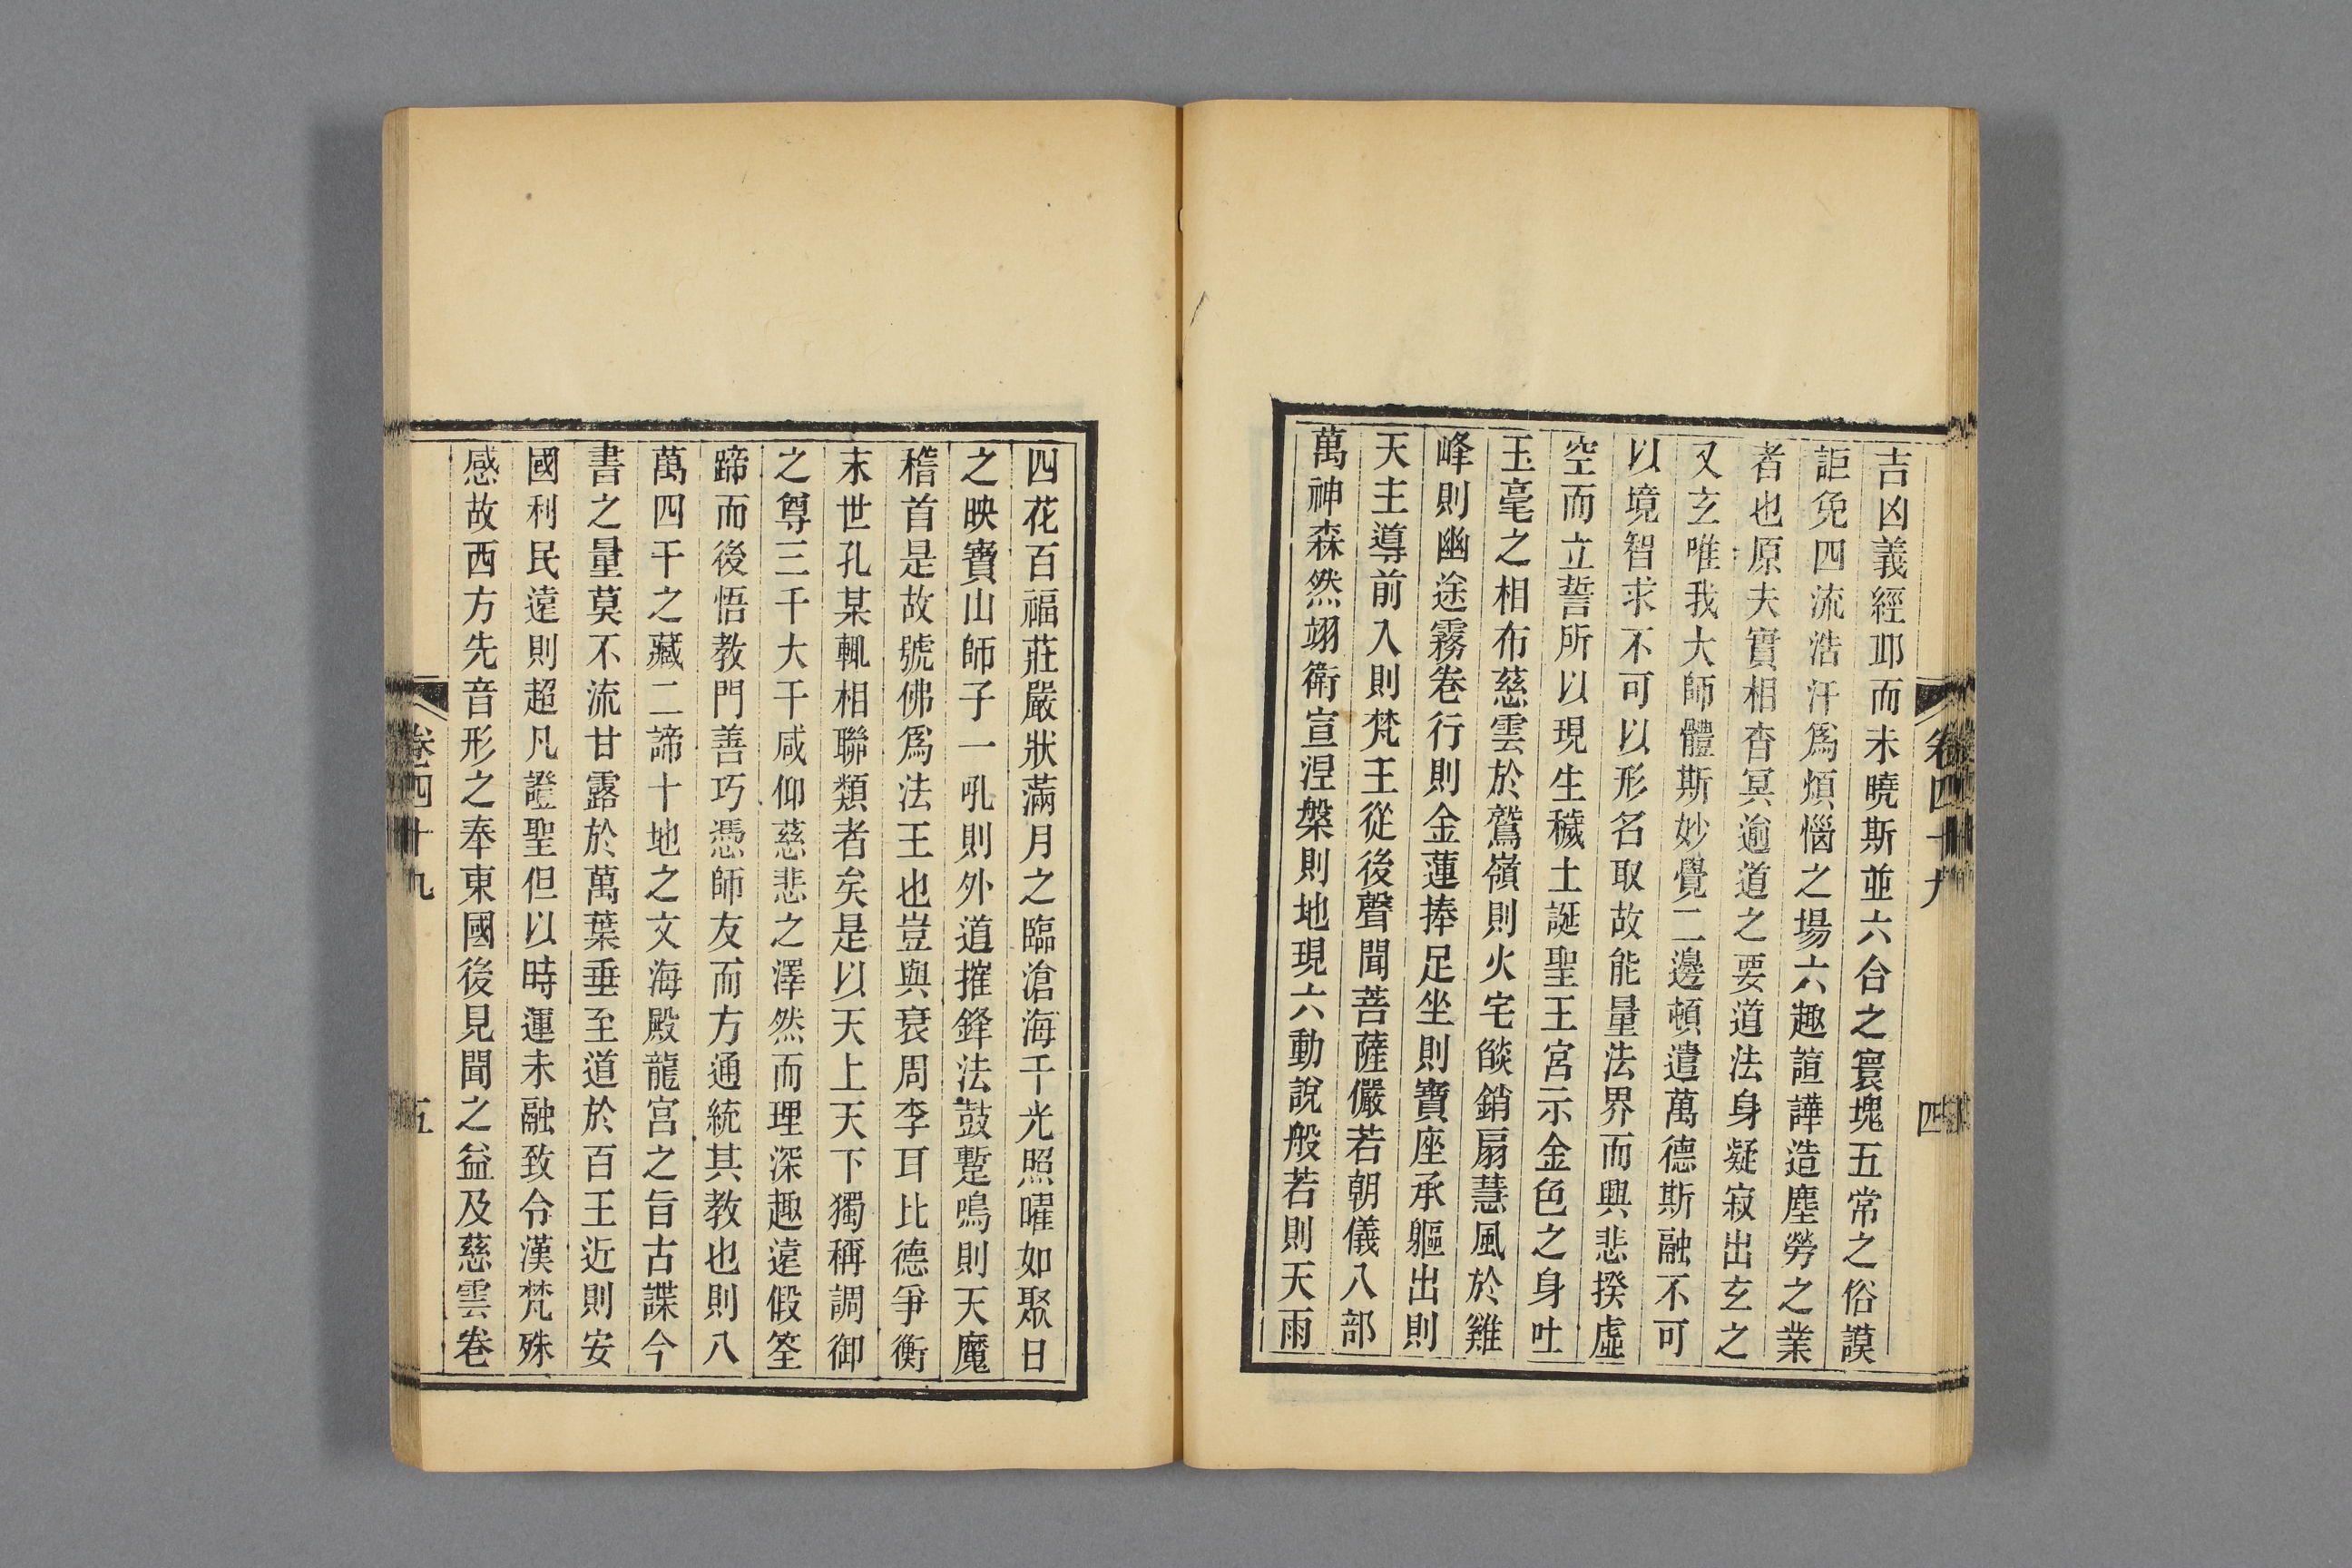 吉凶義經邪而未曉斯並六合之寰塊五常之俗謨
詎免四流浩汗爲煩惱之場六趣諠譁造塵勞之業
者也原夫實相杳冥逾道之要道法身凝寂出玄之
又玄唯我大師體斯妙覺二邊頓遣萬德斯融不可
以境智求不可以形名取故能量法界而興悲揆虛
空而立誓所以現生穢土誕聖王宮示金色之身吐
玉毫之相布慈雲於鷲嶺則火宅燄銷扇慧風於雞
峰則幽途霧卷行則金蓮捧足坐則寶座承軀出則
天主導前入則梵王從後聲聞菩薩儼若朝儀八部
萬神森然翊衛宣涅槃則地現六動說般若則天雨
卷四十九
四
四花百福莊嚴狀滿月之臨滄海千光照曜如聚日
之映寶山師子一吼則外道摧鋒法鼓蹔鳴則天魔
稽首是故號佛爲法王也豈與衰周李耳比德爭衡
末世孔某輒相聯類者矣是以天上天下獨稱調御
之尊三千大千咸仰慈悲之澤然而理深趣遠假筌
蹄而後悟教門善巧憑師友而方通統其教也則八
萬四千之藏二諦十地之文海殿龍宮之旨古諜今
書之量莫不流甘露於萬葉垂至道於百王近則安
國利民遠則超凡證聖但以時運未融致令漢梵殊
感故西方先音形之奉東國後見聞之益及慈雲卷
卷四十九
五